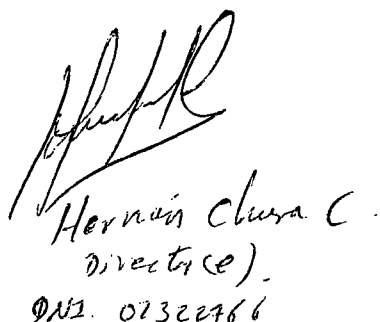 Hernán Chura C.
Director(e).
DNI. 01322766